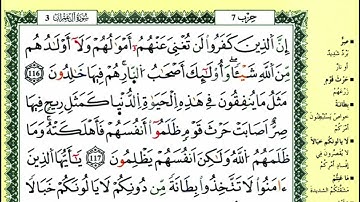 حزب 7
سورة آل عمران 3
إِنَّ ٱلَّذِينَ كَفَرُواْ لَن تُغْنِىَ عَنْهُمْ أَمْوَٰلُهُمْ وَلَآ أَوْلَٰدُهُم
مِّنَ ٱللَّهِ شَيْـًٔا وَأُوْلَٰٓئِكَ أَصْحَٰبُ ٱلنَّارِ هُمْ فِيهَا خَٰلِدُونَ 116
مَثَلُ مَا يُنفِقُونَ فِى هَٰذِهِ ٱلْحَيَوٰةِ ٱلدُّنْيَا كَمَثَلِ رِيحٍ فِيهَا
صِرٌّ أَصَابَتْ حَرْثَ قَوْمٍ ظَلَمُوٓاْ أَنفُسَهُمْ فَأَهْلَكَتْهُ وَمَا
ظَلَمَهُمُ ٱللَّهُ وَلَٰكِنْ أَنفُسَهُمْ يَظْلِمُونَ 117 يَٰٓأَيُّهَا ٱلَّذِينَ
ءَامَنُواْ لَا تَتَّخِذُواْ بِطَانَةً مِّن دُونِكُمْ لَا يَأْلُونَكُمْ خَبَالًا
صِرٌّ
بَرْدٌ شَدِيدٌ
أو نار
حَرْثَ قَوْمٍ
زَرْعَهُمْ
بِطَانَةً
لا يألونكم خبالا